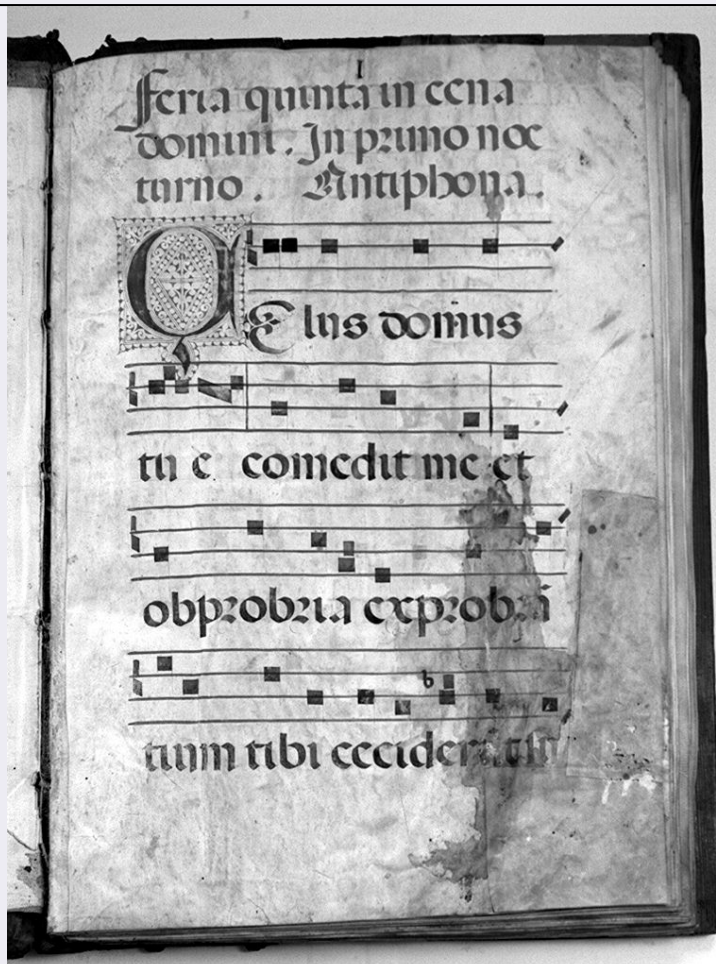 I
Feria quinta in cena
domini. In primo noc
turno. Antiphona.
ÇElus domus
tue comedit me et
obprobria exprobrā
tium tibi ceciderūt